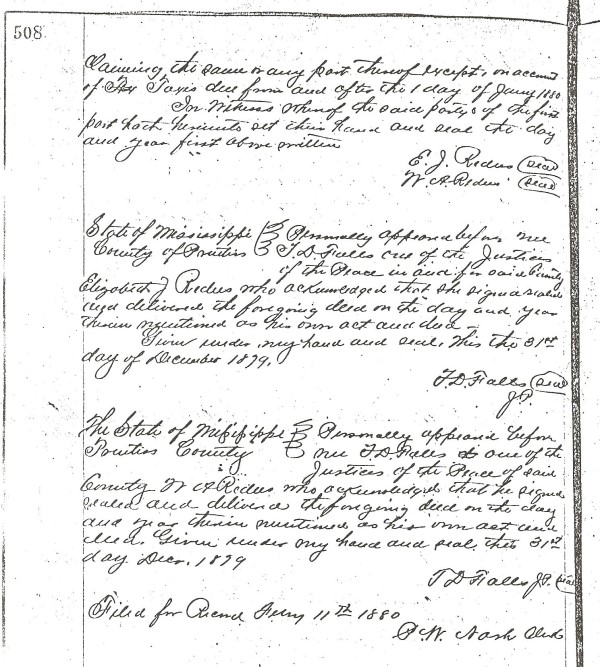 508
Claiming the same or any part thereof except, on account
of Tax Taxes due from and after the 1 day of Jany 1880
In Witness wherof the said partys of the first
part hath hereunto set their hand and seal the day
and year first above written
E. J. Redus (seal)
W A Redus (seal)
State of Mississippi } Personally appeared before me
County of Pontiac } T. D. Falls one of the Justices
of the Peace in and for said County
Elizabeth J Redus who acknowledged that she signed sealed
and delivered the foregoing deed on the day and year
therein mentioned as his own act and deed –
Given under my hand and seal. This the 31st
day of December 1879.
T. D. Falls (seal)
J.P.
The State of Mississippi } Personally appeared before
County } me T. D. Falls one of the
Justices of the Peace of said
County W A Redus who acknowledged that he signed
sealed and delivered the foregoing deed on the day
and year therein mentioned as his own act and
deed. Given under my hand and seal. this 31st
day Decr. 1879
T D Falls J.P. (seal)
Filed for Record Feby 11th 1880
P. W. Nash Clerk